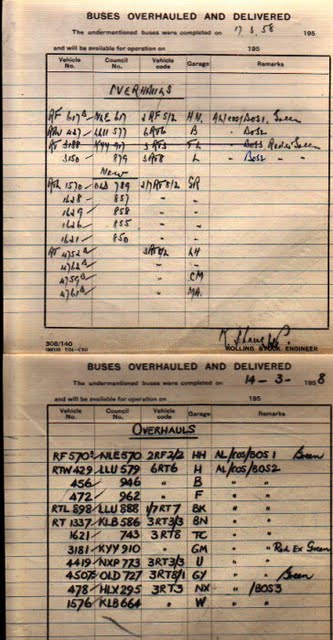 BUSES OVERHAULED AND DELIVERED
The undermentioned buses were completed on 7.3.58 195
and will be available for operation on 195
Vehicle No. Council No. Vehicle code Garage Remarks
OVERHAULS
RF 607 NLE 607 2RF5/2 HN. AL/COS/BOS1. Green
RTW 427 LLU 577 6RT6 B " BOS2
RT 3188 KYY 907 3RT3 FL " BOS3 Green
3150 879 3RT8 L " BOS2 " "
New
1570 OLD 789 SR
1628 857 " "
1629 858 " "
1626 855 " "
1621 850 " "
RT 4752 LH
4762 " "
4759 " CM
4761 " MA.
308/140
ROLLING STOCK ENGINEER
BUSES OVERHAULED AND DELIVERED
The undermentioned buses were completed on 14-3- 1958
and will be available for operation on 195
Vehicle No. Council No. Vehicle code Garage Remarks
OVERHAULS
RF 570 NLE 570 2RF2/2 HH AL/COS/BOS 1 Green
RTW 429 LLU 579 6RT6 H AL/COS/BOS2
456 946 " B " "
472 962 " F " "
RTL 898 LLU 888 1/7RT7 BK " "
RT 1337 KLB 586 3RT3/3 BN " "
1621 743 3RT8 TC " "
3181 KYY 910 " GM " " Red Ex Green
4419 NXP 773 3RT3/3 U " "
4507 OLD 727 3RT8/1 GY " " Green
478 HLX 295 3RT3 NX " /BOS3
1576 KLB 664 " W " "